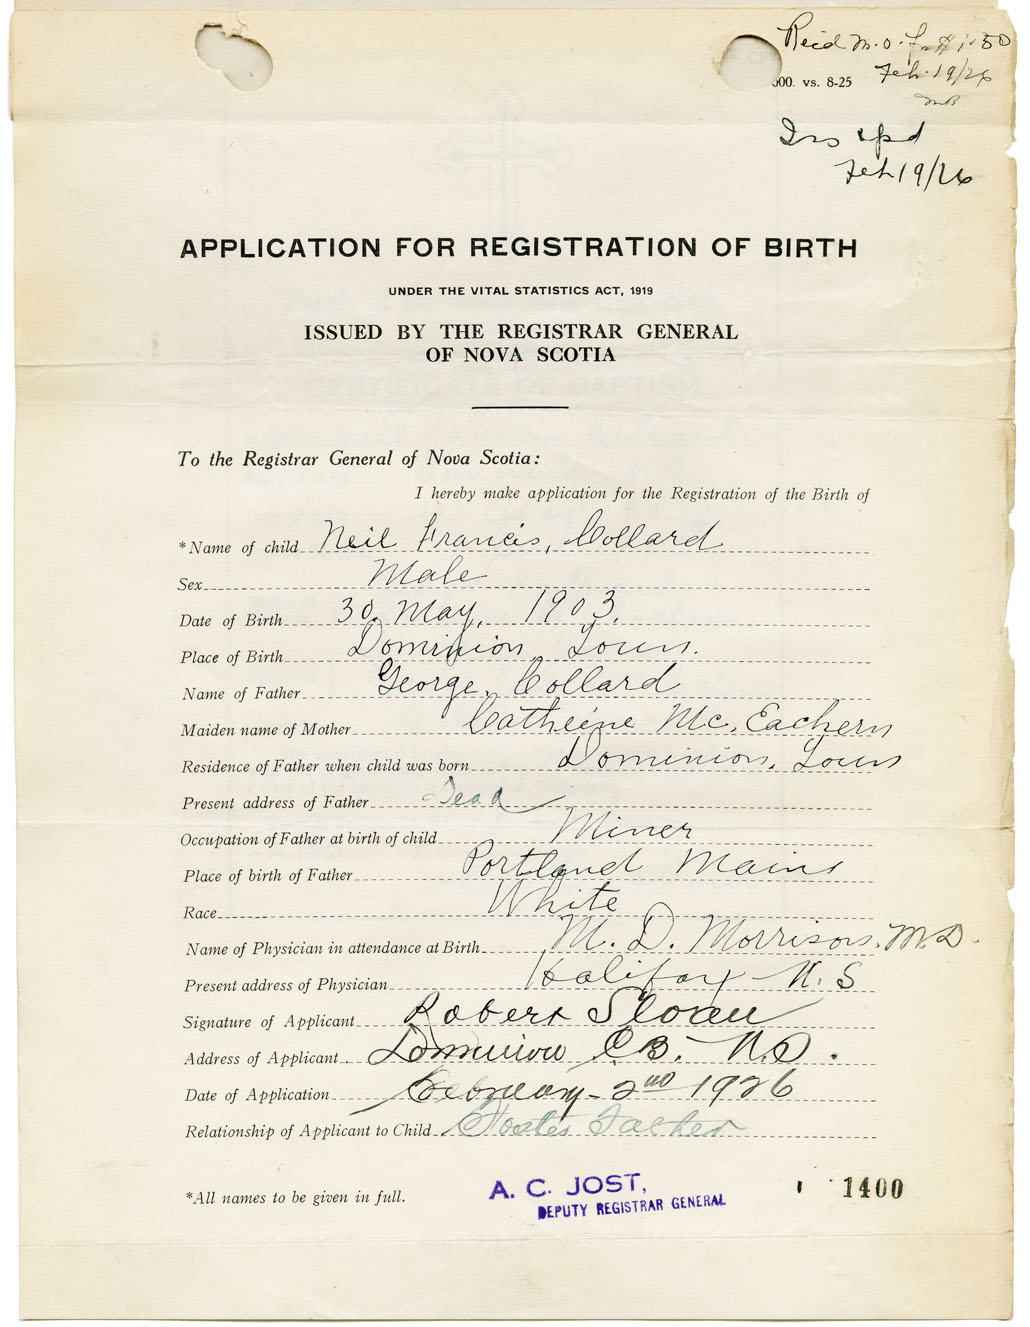 Recd M.O. for $1.50
000. vs. 8-25
Feb. 19/26
MB
Ins & pd
Feb 19/26
APPLICATION FOR REGISTRATION OF BIRTH
UNDER THE VITAL STATISTICS ACT, 1919
ISSUED BY THE REGISTRAR GENERAL
OF NOVA SCOTIA
CERTIFICATE OF BAPTISM
To the Registrar General of Nova Scotia:
I hereby make application for the Registration of the Birth of
*Name of child Neil Francis, Collard
Sex Male
Date of Birth 30, May, 1903.
Place of Birth Dominion Town.
Name of Father George, Collard
Maiden name of Mother Catheine Mc, Eachern
Residence of Father when child was born Dominion, Town
Present address of Father Dead
Occupation of Father at birth of child Miner
Place of birth of Father Portland Main
Race White
Name of Physician in attendance at Birth M. D. Morrison. M.D.
Present address of Physician Halifax N. S
Signature of Applicant Robert Sloan
Address of Applicant Dominion C.B. N.S.
Date of Application February 2nd 1926
Relationship of Applicant to Child Foster Father
*All names to be given in full.
A. C. JOST,
DEPUTY REGISTRAR GENERAL
1400